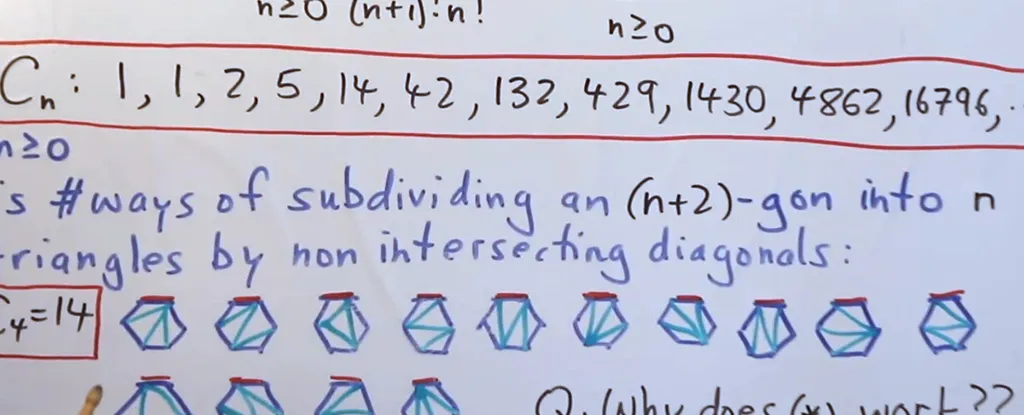 n≥0 (n+1)!n!
n≥0
Cn: 1, 1, 2, 5, 14, 42, 132, 429, 1430, 4862, 16796, .
n≥0
s #ways of subdividing an (n+2)-gon into n
riangles by non intersecting diagonals:
C4=14
Q. Why does (*) work??